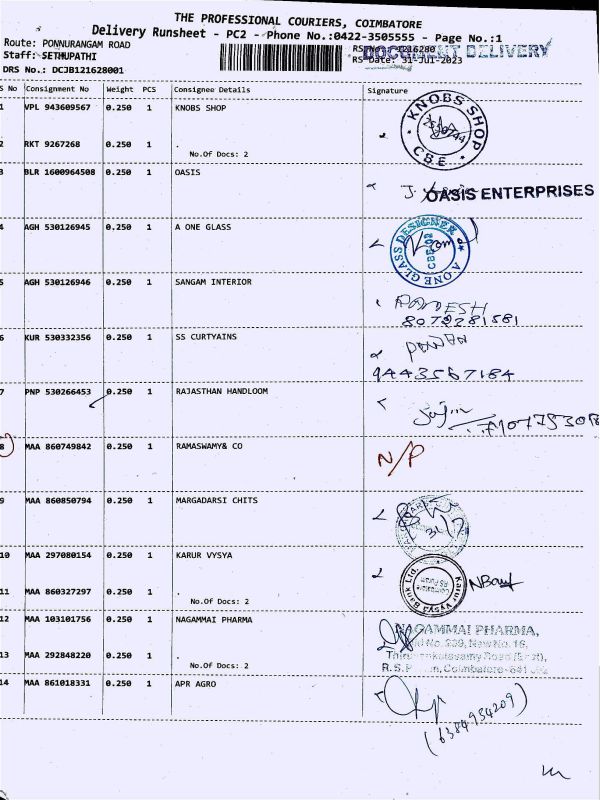 THE PROFESSIONAL COURIERS, COIMBATORE
Delivery Runsheet - PC2 - Phone No.:0422-3505555 - Page No.:1
Route: PONNURANGAM ROAD
Staff: SETHUPATHI
DRS No.: DCJB121628001
DOCUMENT DELIVERY
RS Date: 31-Jul-2023
S No Consignment No Weight PCS Consignee Details Signature
1 VPL 943609567 0.250 1 KNOBS SHOP
KNOBS SHOP
CBE
2 RKT 9267268 0.250 1 .
No.Of Docs: 2
3 BLR 1600964508 0.250 1 OASIS
OASIS ENTERPRISES
4 AGH 530126945 0.250 1 A ONE GLASS
A ONE GLASS DESIGNER
5 AGH 530126946 0.250 1 SANGAM INTERIOR
8072281581
6 KUR 530332356 0.250 1 SS CURTYAINS
9443567184
7 PNP 530266453 0.250 1 RAJASTHAN HANDLOOM
8 MAA 860749842 0.250 1 RAMASWAMY& CO
N/P
9 MAA 860850794 0.250 1 MARGADARSI CHITS
31/7
10 MAA 297080154 0.250 1 KARUR VYSYA
Karur Vysya Bank Ltd.
11 MAA 860327297 0.250 1 .
No.Of Docs: 2
12 MAA 103101756 0.250 1 NAGAMMAI PHARMA
NAGAMMAI PHARMA,
No. 239, New No. 16,
13 MAA 292848220 0.250 1 .
No.Of Docs: 2
14 MAA 861018331 0.250 1 APR AGRO
(6384954209)